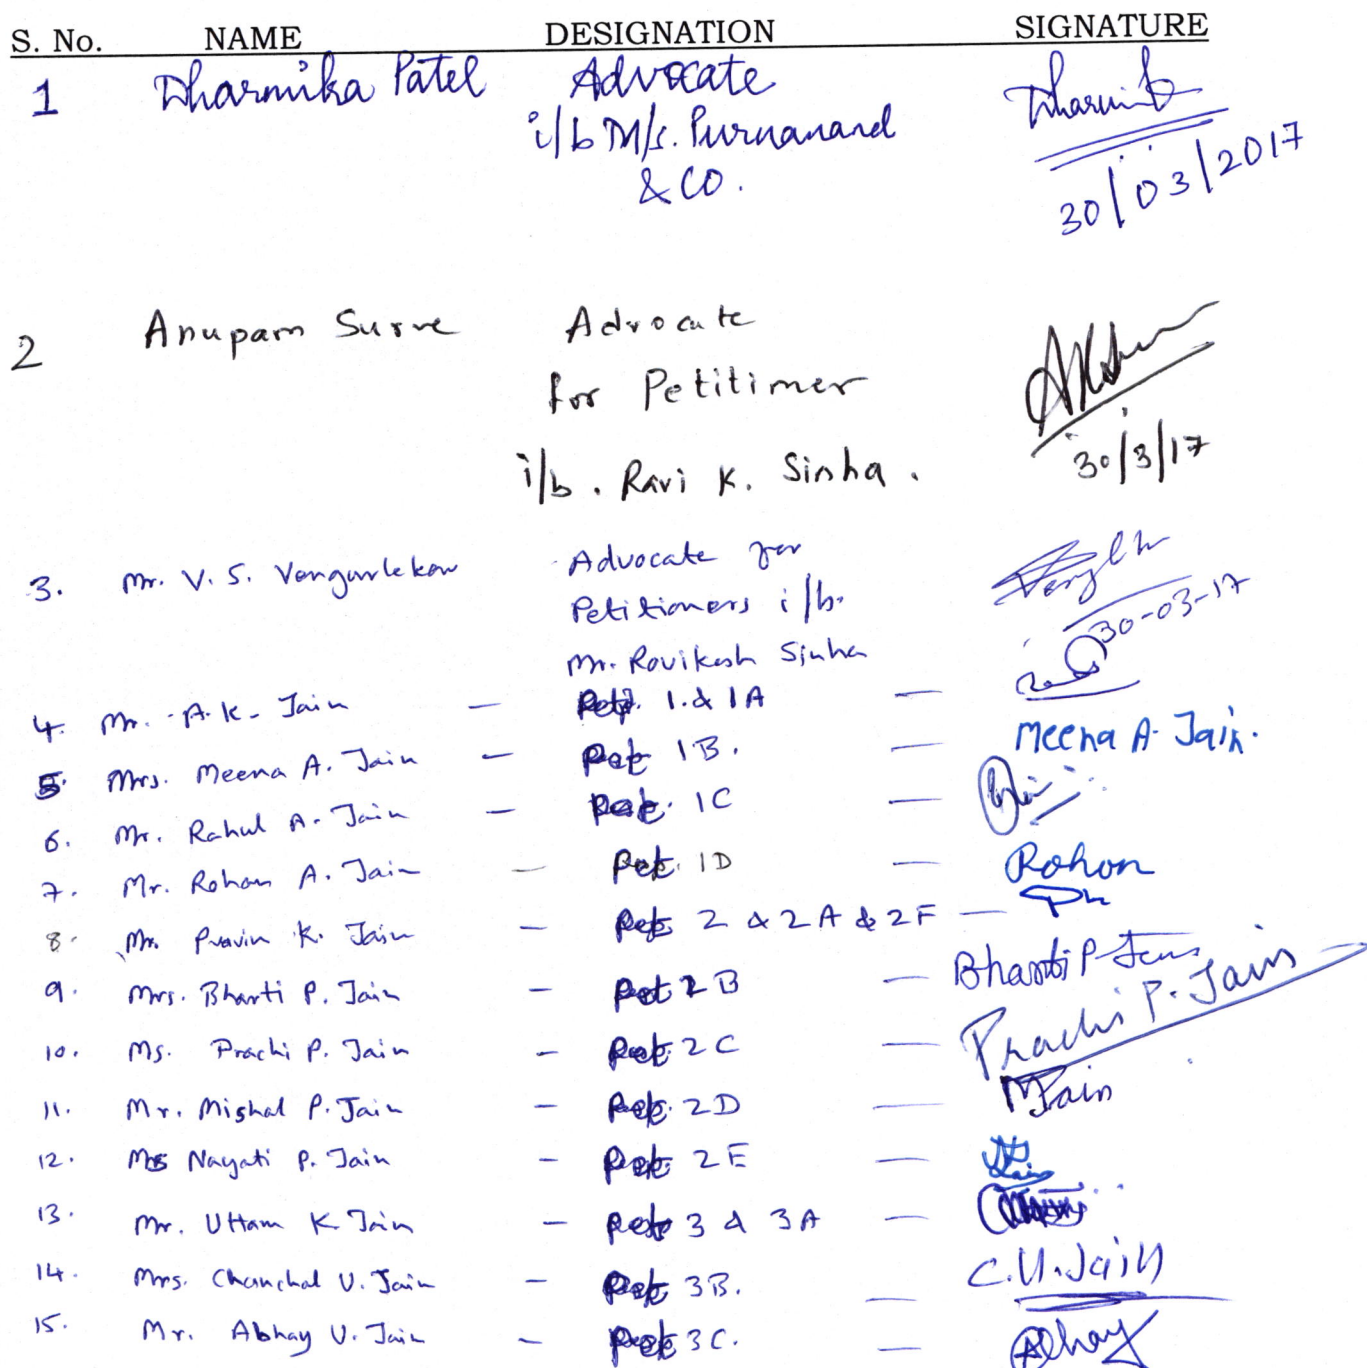 S. No. NAME DESIGNATION SIGNATURE
1 Dharmika Patel Advocate
i/b M/s. Purnanand
& CO.
30/03/2017
2 Anupam Surve Advocate
for Petitioner
i/b. Ravi K. Sinha.
30/3/17
3. Mr. V. S. Vengurlekar Advocate for
Petitioners i/b.
30-03-17
Mr. Ravikesh Sinha
4. Mr. A. K. Jain — Pet. 1 & 1A —
5. Mrs. Meena A. Jain — Pet 1B. — Meena A. Jain.
6. Mr. Rahul A. Jain — Pet. 1C —
7. Mr. Rohan A. Jain — Pet. 1D — Rohan
8. Mr. Pravin K. Jain — Pet 2 & 2A & 2F —
9. Mrs. Bharti P. Jain — Pet 2B — Bharti P Jain
10. Ms. Prachi P. Jain — Pet. 2C — Prachi P. Jain
11. Mr. Mishal P. Jain — Pet. 2D — MJain
12. Ms Nayati P. Jain — Pet. 2E —
13. Mr. Uttam K Jain — Pet 3 & 3A —
14. Mrs. Chanchal U. Jain — Pet 3B. — C.U.Jain
15. Mr. Abhay U. Jain — Pet 3C. — Abhay